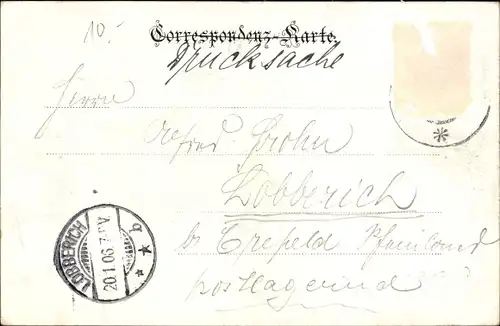 10.-
Correspondenz-Karte.
Drucksache
Herrn
Alfred Brohn
Lobberich
by Crefeld Rheinland
postlagernd
LOBBERICH
20.1.06.7-8V.
* * b
*